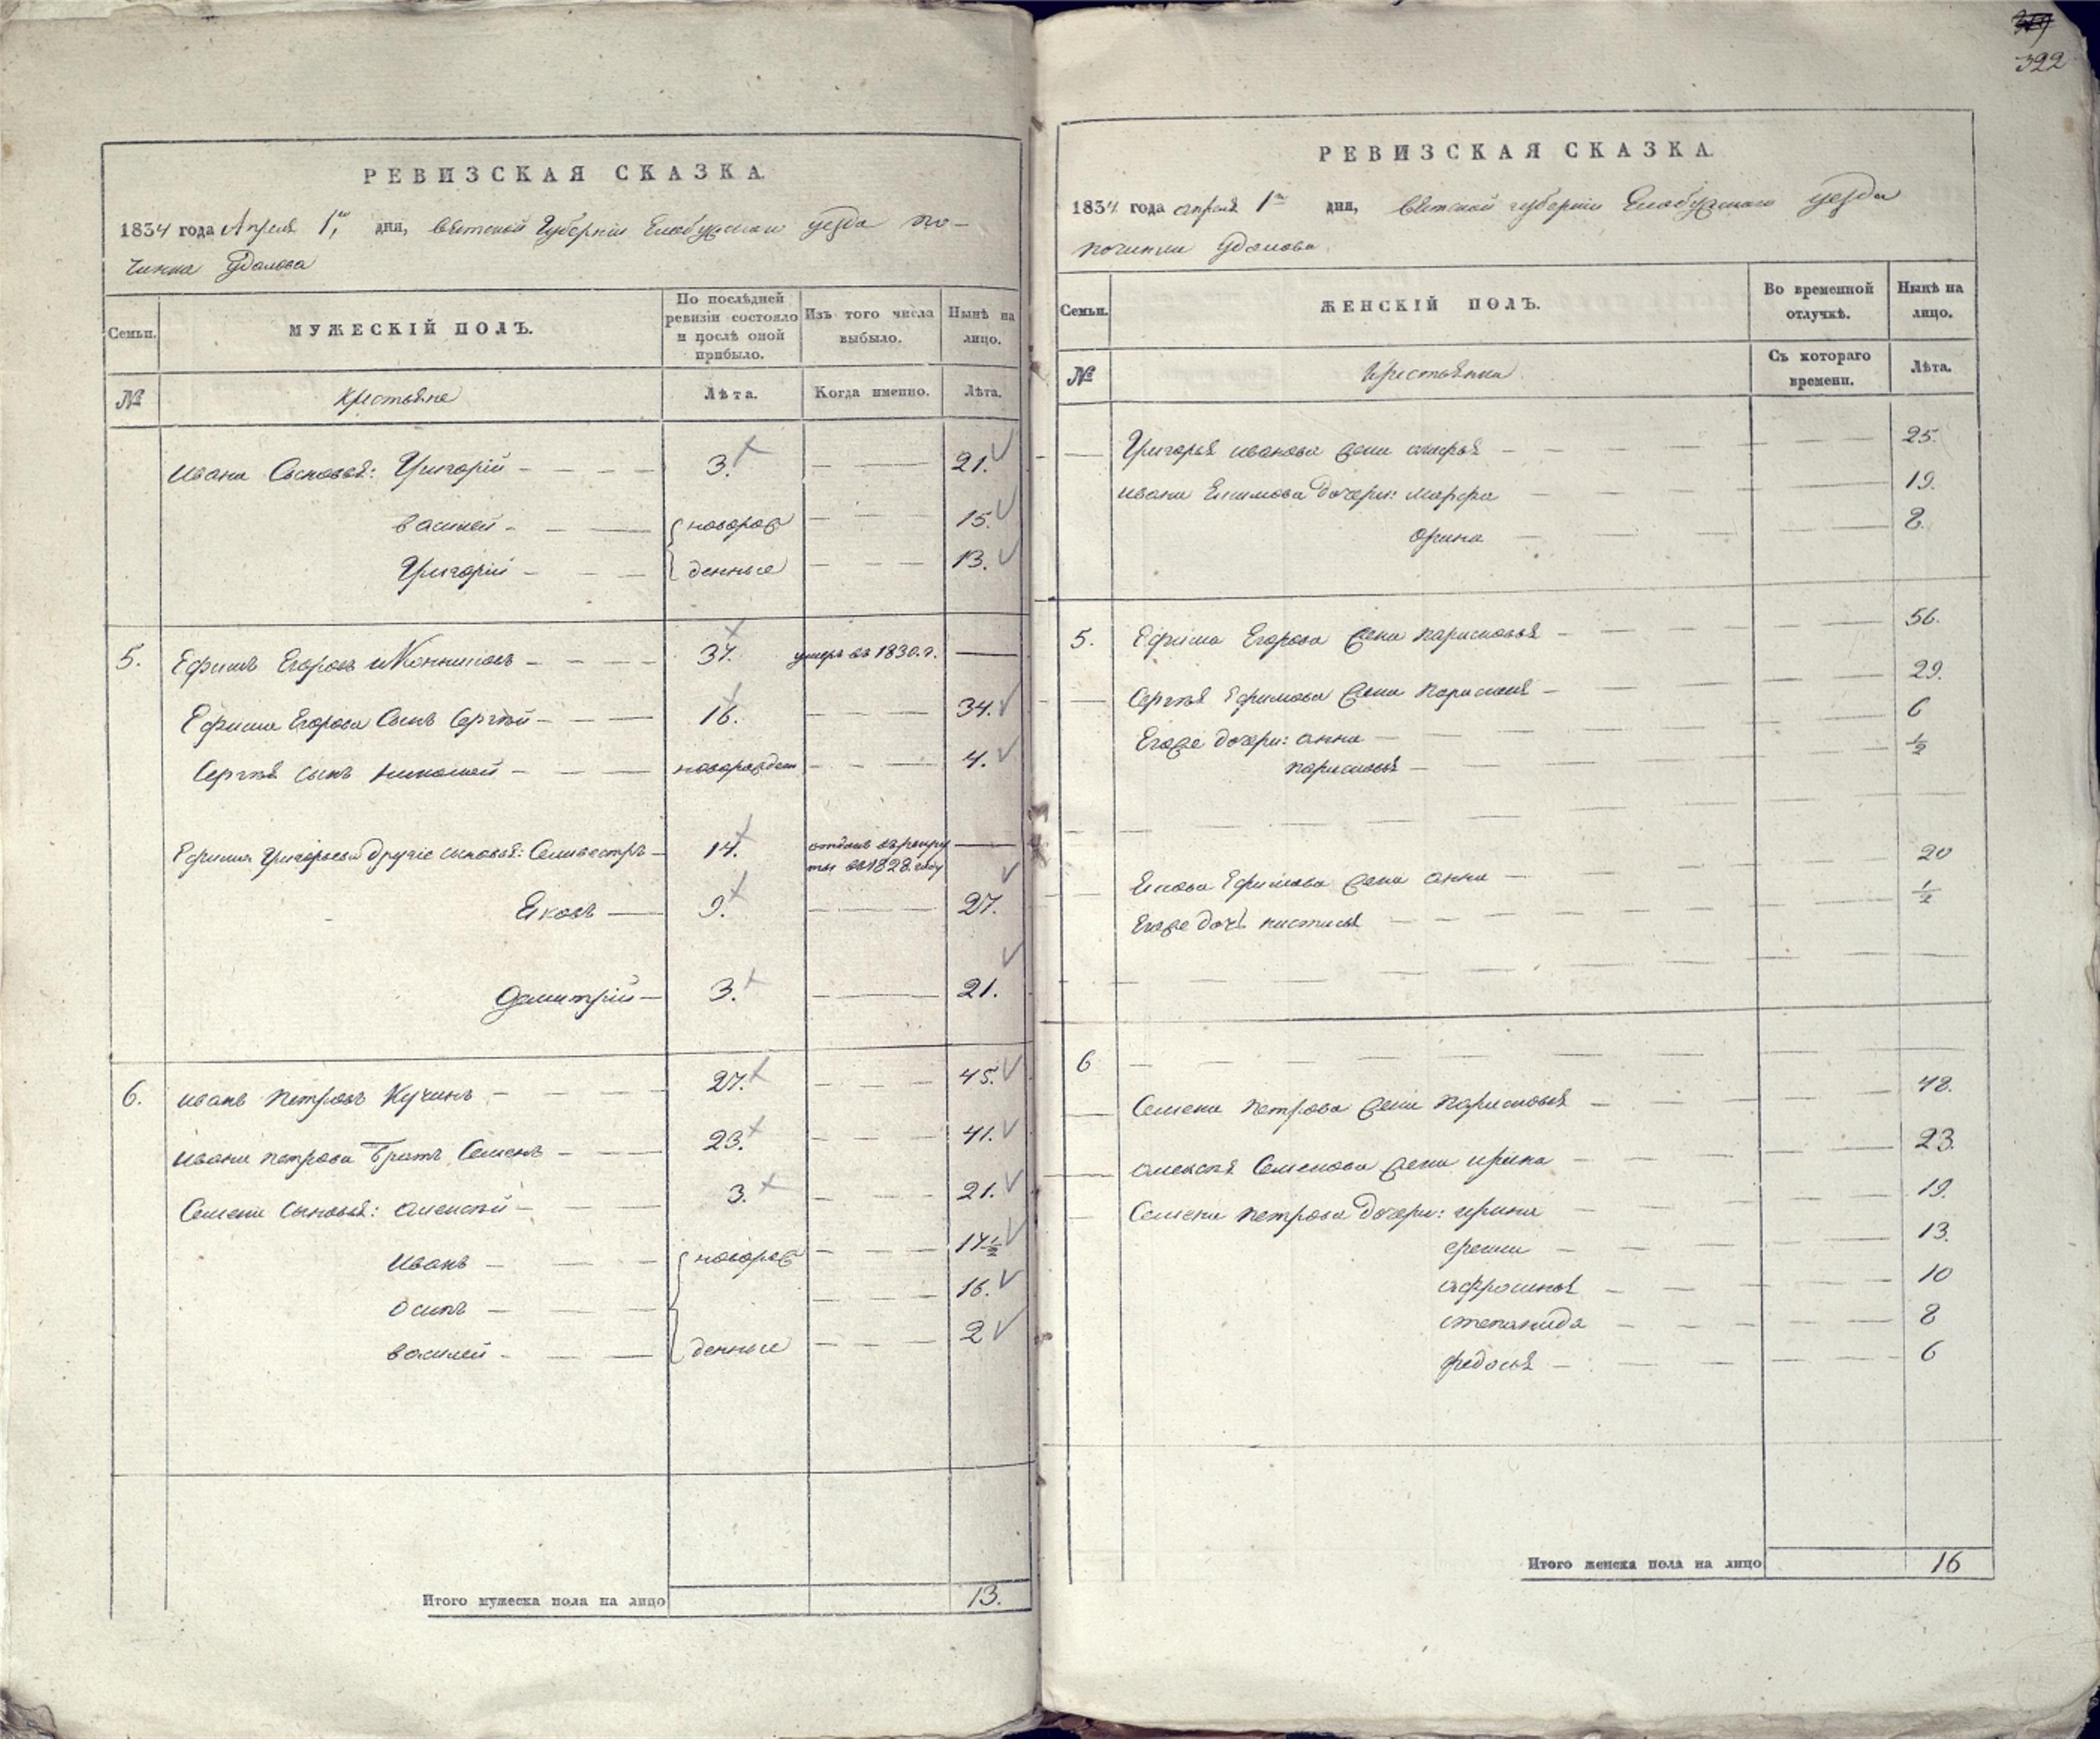 322
РЕВИЗСКАЯ СКАЗКА.
1834 года Апреля 1го дня, вятской Губерніи Елабужскаго уезда по-
чинка Удалова
Семьи. МУЖЕСКІЙ ПОЛЪ. По послѣдней ревизіи состояло и послѣ оной прибыло. Изъ того числа выбыло. Нынѣ на лицо.
№ Крестьяне Лѣта. Когда именно. Лѣта.
ивана Сыновья: Григорій 3. 21.
василей новорож 15.
Григорій денные 13.
5. Ефимъ Егоровъ 37. умеръ въ 1830. г.
Ефима Егорова Сынъ Сергѣй 16. 34.
Сергѣя сынъ николай новорожден 4.
Ефима Григорьева другіе сыновья: Селивестръ 14. отданъ въ рекру
ты въ 1828 году
Яковъ 9. 27.
Дмитрій 3. 21.
6. иванъ петровъ Кучинъ 27. 45.
ивана петрова Братъ Семенъ 23. 41.
Семена сыновья: алексѣй 3. 21.
иванъ новорож 17½
осипъ 16.
василей денные 2
Итого мужеска пола на лицо 13.
РЕВИЗСКАЯ СКАЗКА.
1834 года апреля 1го дня, вятской губерніи Елабужскаго уезда
починка Удалова
Семьи. ЖЕНСКІЙ ПОЛЪ. Во временной отлучкѣ. Нынѣ на лицо.
№ Крестьянка Съ котораго времени. Лѣта.
Григорья иванова жена 25.
ивана дочери: марфа 19.
орина 8.
5. Ефима Егорова жена парасковья 56.
Сергѣя Ефимова жена 29.
Егоже дочери: анна 6
парасковья ½
Якова Ефимова жена анна 20
Егоже дочь ½
6
Семена петрова жена парасковья 48.
алексѣя Семенова жена ирина 23.
Семена петрова дочери: ирина 19.
13.
афросинья 10
степанида 8
федосья 6
Итого женска пола на лицо 16